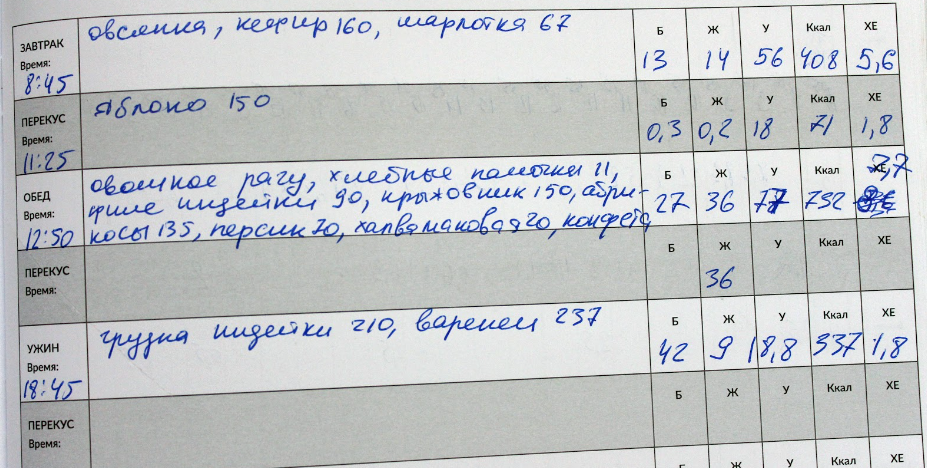 ЗАВТРАК овсянка, кефир 160, шарлотка 67 Б Ж У Ккал ХЕ
Время: 13 14 56 408 5,6
8:45
ПЕРЕКУС Яблоко 150 Б Ж У Ккал ХЕ
Время: 0,3 0,2 18 71 1,8
11:25
ОБЕД овощное рагу, хлебные палочки 11, Б Ж У Ккал ХЕ 7,7
Время: филе индейки 90, крыжовник 150, абри- 27 36 77 732
12:50 косы 135, персик 70, халва маковая 20, конфета
ПЕРЕКУС Б Ж У Ккал ХЕ
Время: 36
УЖИН грудка индейки 210, варенец 237 Б Ж У Ккал ХЕ
Время: 42 9 18,8 337 1,8
18:45
ПЕРЕКУС Б Ж У Ккал ХЕ
Время:
Б Ж У Ккал ХЕ